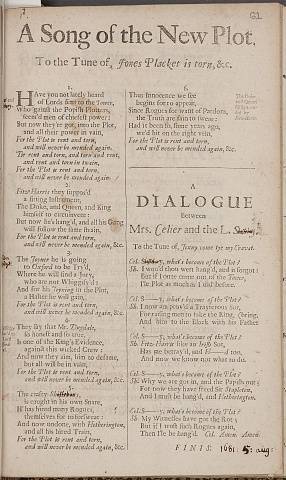 A Song of the New Plot.
To the Tune of, Jones Placket is torn, &c.
1.
HAve you not lately heard
of Lords sent to the Tower,
Who 'gainst the Popish Plotters,
seem'd men of chiefest power:
But now they're got into the Plot,
and all their power in vain,
For the Plot is rent and torn,
and will never be mended again.
Tis rent and torn, and torn and rent,
and rent and torn in twain,
For the Plot is rent and torn,
and will never be mended again.
Fitz-Harris they suppos'd
a fitting Instrument,
The Duke, and Queen, and King
himself to circumvent:
But now he's hang'd, and all his Gang
will follow the same strain,
For the Plot is rent and torn,
and will never be mended, &c.
3
The Joyner he is going
to Oxford to be Try'd,
Where he will find a Jury,
who are not Whiggish'd:
And for his Joyning in the Plot,
a Halter he will gain,
For the Plot is rent and torn,
and will never be mended, &c.
4
They say that Mr. Dugdale,
so honest and so true
Is one of the King's Evidence,
against this wicked Crew:
And now they aim, him to defame,
but all will be in vain,
For the Plot is rent and torn,
and will never be mended again, &c.
The crafty
is caught in his own Snare,
H' has hired many Rogues,
themselves for to forswear:
And now undone, with Hetherington,
and all his hired Train,
For the Plot is rent and torn,
and will never be mended again, &c.
6.
Thus Innocence we see
begins for to appear,
Since Rogues sue want of Pardons,
the Truth are fain to swear:
Had it been so, some years ago,
we'd hit on the right vein,
For the Plot is rent and torn,
and will never be mended again, &c.
A
DIALOGUE
Between
Mrs. Celier and the L.
To the Tune of, Jenny come tye my Cravat.
Cel. what's become of the Plot?
Sh. I would thou wert hang'd, and it forgot:
But if I once come out of the Tower,
I'le Plot as much as I did before.
Cel. S——y, what's become of the Plot?
Sh. I now am prov'd a Trayterous Sot,
For raising men to take the King, (bring,
And him to the Block with his Father
Cel. S——y, what's become of the Plot?
Sh. Fitz-Harris that
Has me betray'd, and
And now we know not what to do.
Cel. S——y, what's become of the Plot?
Sh. Why we are got in, and the Papists out:
For now they have freed Sir Stapleton,
And I must be hang'd, and Hetherington.
Cel. S——y, what's become of the Plot?
Sh. My Witnesses have got the Rot;
But if I trust such Rogues again,
Then I'le be hang'd. Cel. Amen. Amen.
FINIS. 1681 5: aug: